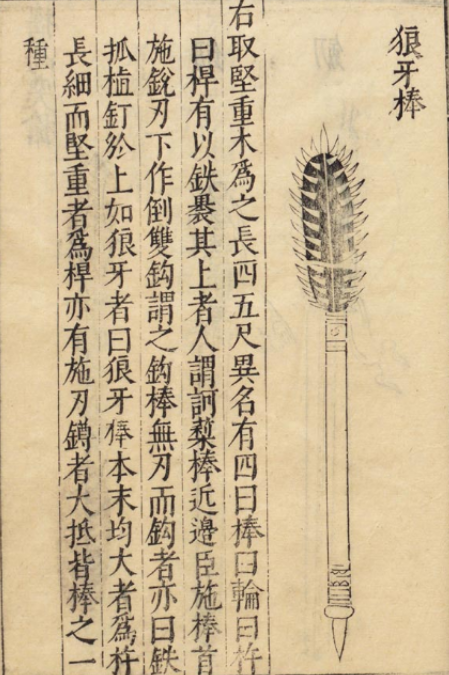 狼牙棒
右取堅重木爲之長四五尺異名有四曰棒曰輪曰杵
曰桿有以鉄褁其上者人謂訶棃棒近邊臣施棒首
施銳刃下作倒雙鈎謂之鈎棒無刃而鈎者亦曰鉄
抓植釘於上如狼牙者曰狼牙棒本末均大者爲杵
長細而堅重者爲桿亦有施刃鐏者大抵皆棒之一
種